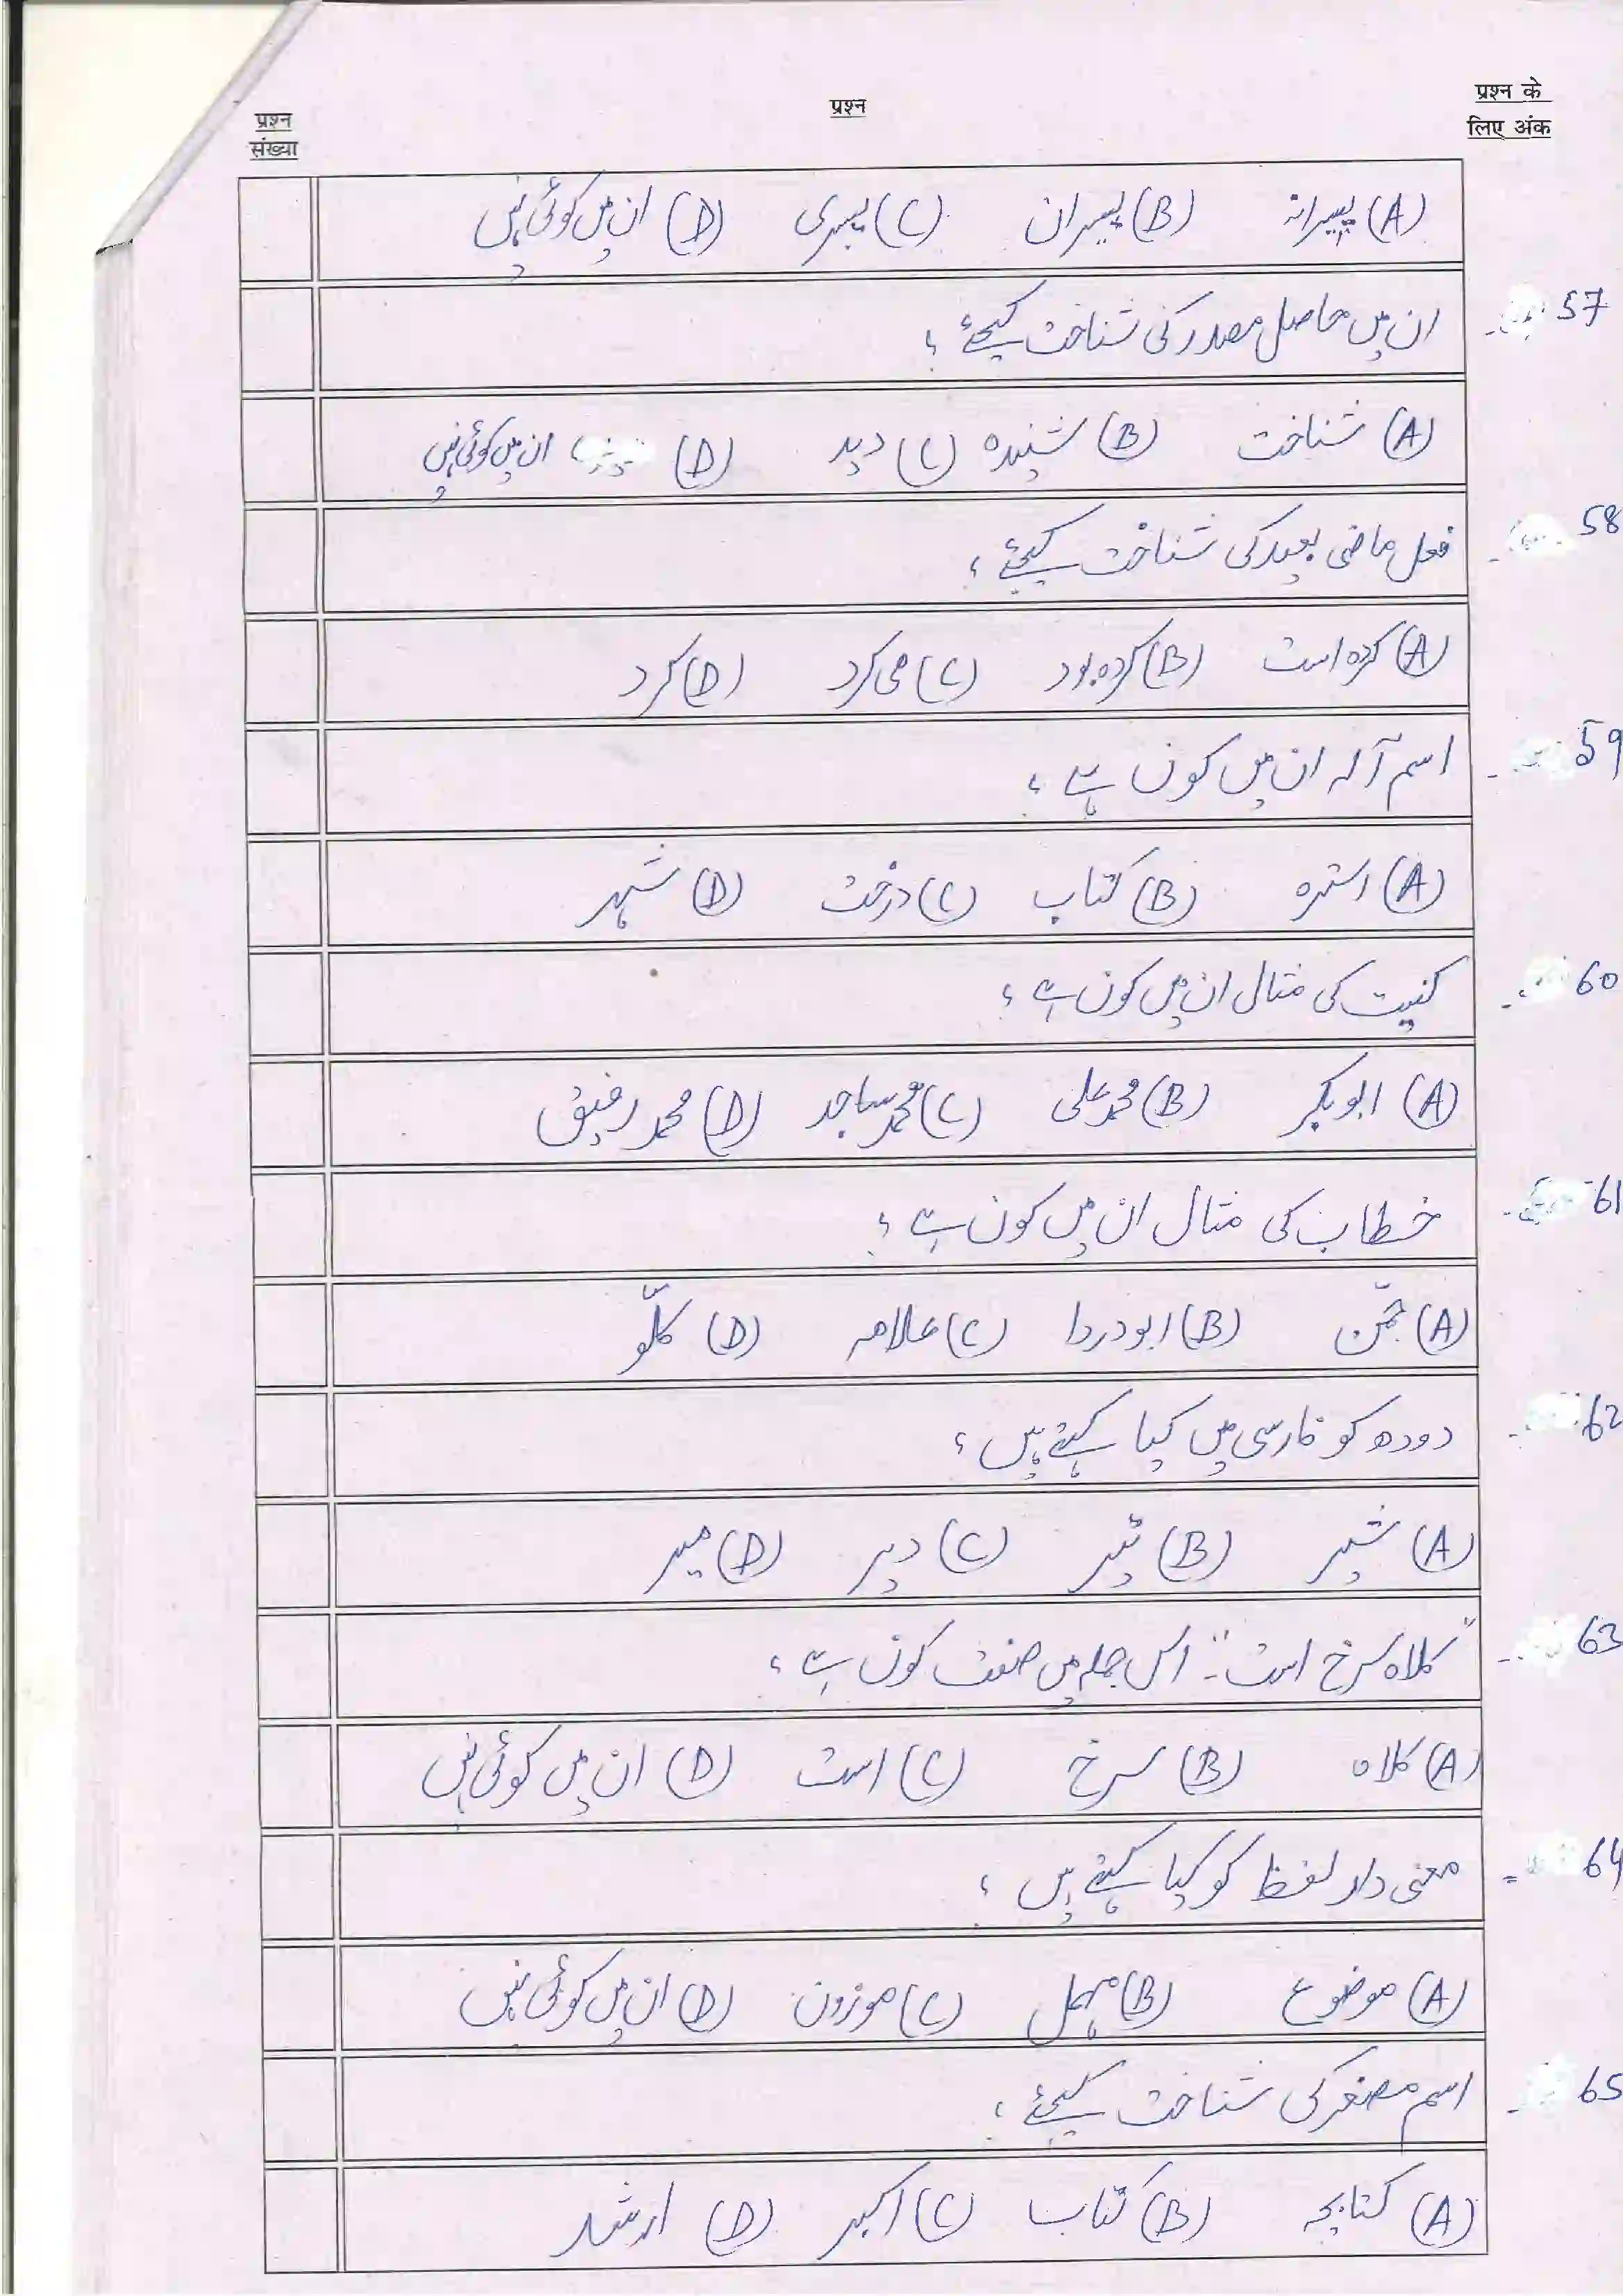 प्रश्न संख्या
प्रश्न
प्रश्न के लिए अंक
(A) پیرانہ (B) پیران (C) پیری (D) ان میں کوئی نہیں
57 - ان میں حاصل مصدر کی شناخت کیجئے؟
(A) شناخت (B) شنیدہ (C) دید (D) ان میں کوئی نہیں
58 - فعل ماضی بعید کی شناخت کیجئے؟
(A) کردہ است (B) کردہ بود (C) می کرد (D) کرد
59 - اسم آلہ ان میں کون ہے؟
(A) استرہ (B) کتاب (C) درخت (D) شہر
60 - کنیت کی مثال ان میں کون ہے؟
(A) ابوبکر (B) محمد علی (C) محمد ساجد (D) محمد رفیق
61 - خطاب کی مثال ان میں کون ہے؟
(A) جمّن (B) ابودردا (C) علامہ (D) کلّو
62 - دودھ کو فارسی میں کیا کہتے ہیں؟
(A) شیر (B) تیر (C) دیر (D) میر
63 - "کلاہ سرخ است"۔ اس جملہ میں صفت کون ہے؟
(A) کلاہ (B) سرخ (C) است (D) ان میں کوئی نہیں
64 - معنی دار لفظ کو کیا کہتے ہیں؟
(A) موضوع (B) مہمل (C) موزون (D) ان میں کوئی نہیں
65 - اسم مصغر کی شناخت کیجئے؟
(A) کتابچہ (B) کتاب (C) اکبر (D) ارشد